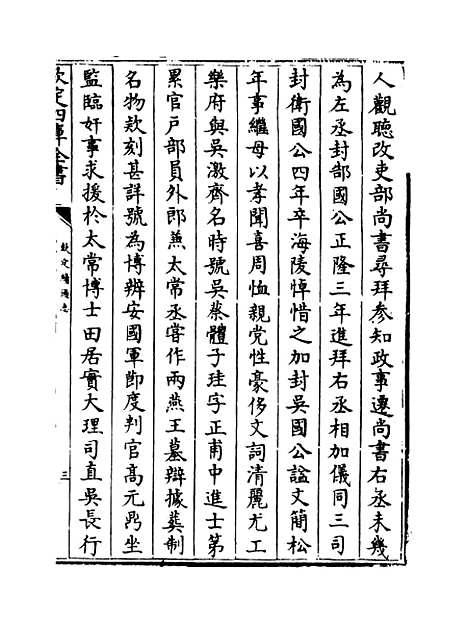 人觀聽改吏部尚書尋拜參知政事遷尚書右丞未幾
為左丞封郜國公正隆三年進拜右丞相加儀同三司
封衛國公四年卒海陵悼惜之加封吳國公諡文簡松
年事繼母以孝聞喜周恤親党性豪侈文詞清麗尤工
樂府與吳激齊名時號吳蔡體子珪字正甫中進士第
累官戸部員外郎蕪太常丞嘗作兩燕王墓辯據葬制
名物款刻甚詳號為博辨安國軍節度判官髙元鼎坐
監臨奸事求援於太常博士田居實大理司直吳長行
欽定四庫全書
欽定續通志
三